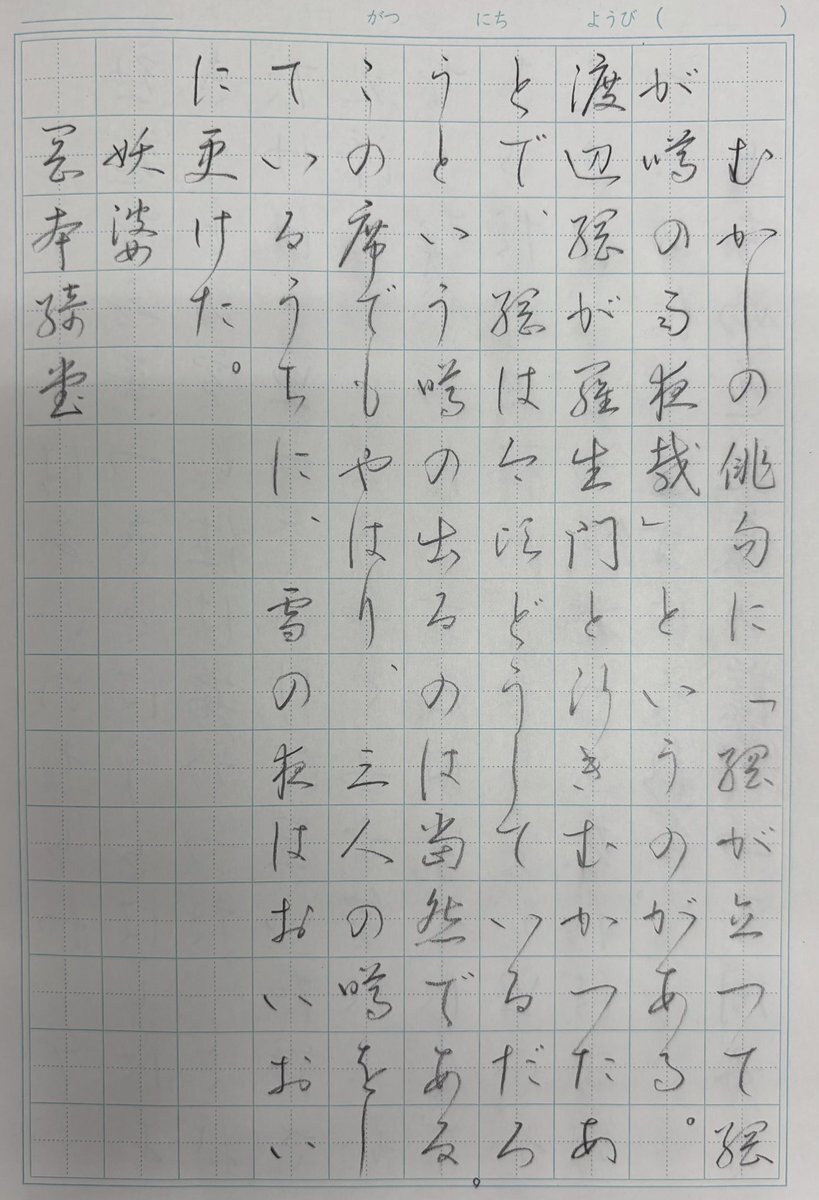 がつ にち ようび ( )
むかしの俳句に「綱が立つて綱
が噂の雨夜哉」というのがある。
渡辺綱が羅生門と行きむかつたあ
とで、綱は今頃どうしているだろ
うという噂の出るのは当然である。
この席でもやはり、三人の噂をし
ているうちに、雪の夜はおいおい
に更けた。
妖婆
岡本綺堂